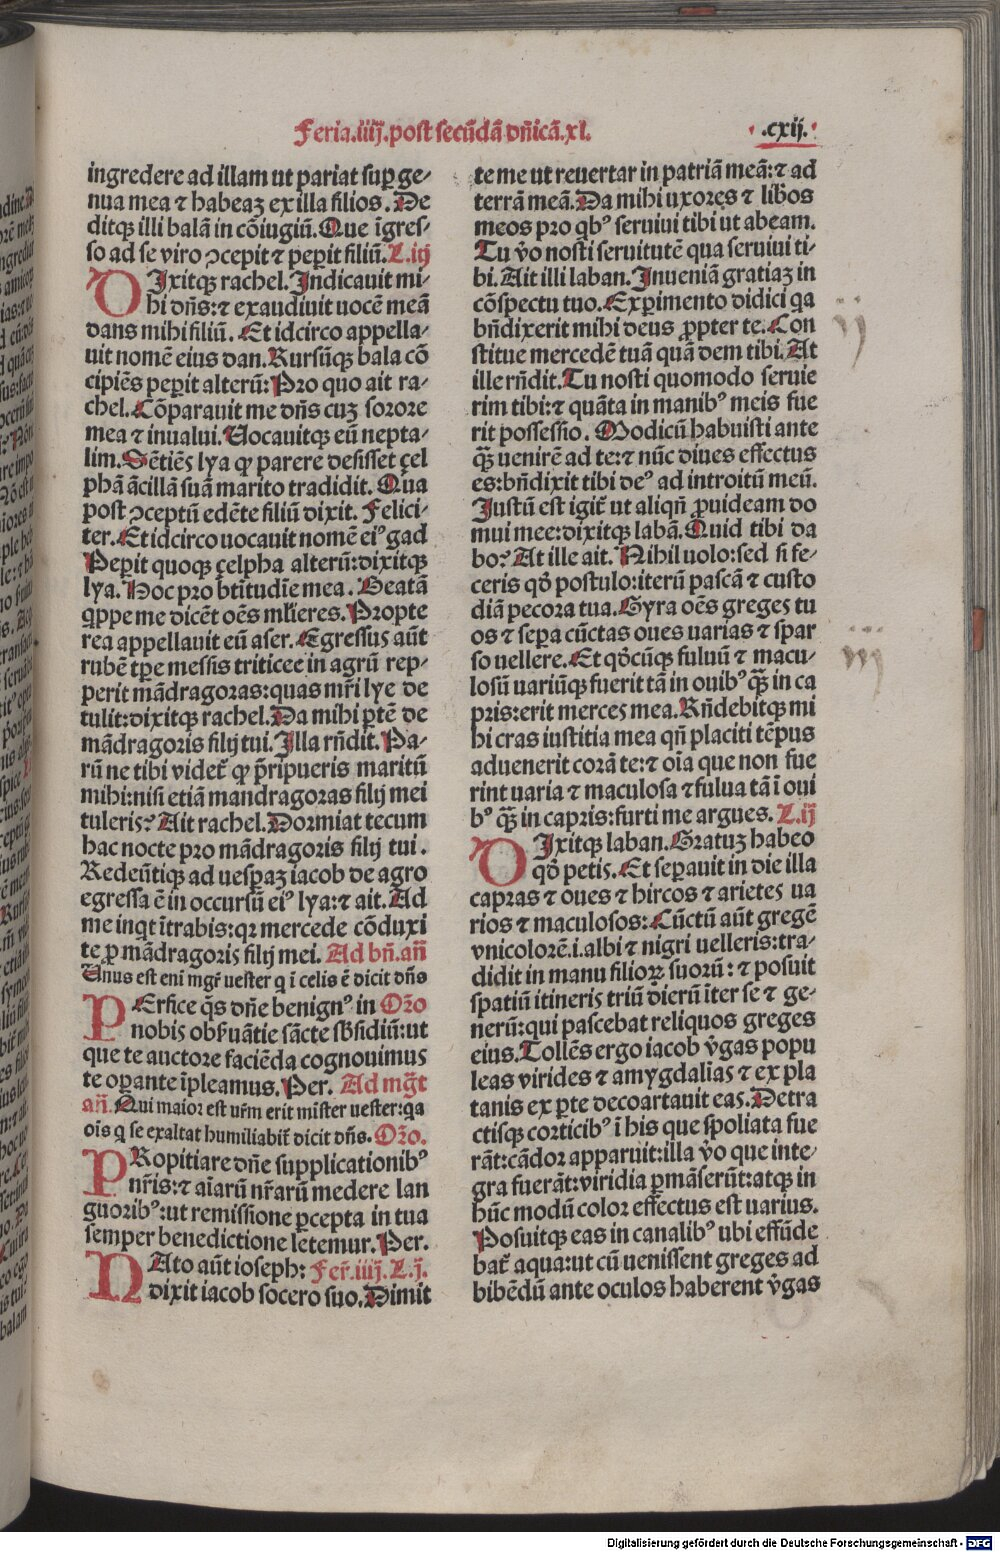 Feria.iiij.post secūdā dñicā.xl.
.cxij.
ingredere ad illam ut pariat suꝑ ge⸗
nua mea ⁊ habeaꝫ ex illa filios. De
ditqꝫ illi balā in cōiugiū. Que īgres⸗
so ad se viro ↄcepit ⁊ peꝑit filiū. L.iij
DIxitqꝫ rachel. Indicauit mi⸗
hi dñs:⁊ exaudiuit uocē meā
dans mihi filiū. Et idcirco appella⸗
uit nomē eius dan. Rursūqꝫ bala cō
cipiēs peꝑit alterū: Pro quo ait ra⸗
chel. Cōparauit me dñs cuꝫ sorore
mea ⁊ inualui. Uocauitqꝫ eū nepta⸗
lim. Sētiēs lya ꝙ parere desisset çel
phā ācillā suā marito tradidit. Qua
post ↄceptū edēte filiū dixit. Felici⸗
ter. Et idcirco uocauit nomē eiꝰ gad
Peꝑit quoqꝫ çelpha alterū:dixitqꝫ
lya. Hoc pro btītudīe mea. Beatā
qꝑpe me dicēt oēs mlieres. Propte
rea appellauit eū aser. Egressus aūt
rubē tꝑe messis triticee in agrū rep⸗
perit mādragoras:quas mr̄i lye de
tulit:dixitqꝫ rachel. Da mihi ꝑtē de
mādragoris filij tui. Illa rñdit. Pa⸗
rū ne tibi videt̄ ꝙ p̄ripueris maritū
mihi:nisi etiā mandragoras filij mei
tuleris? Ait rachel. Dormiat tecum
hac nocte pro mādragoris filij tui.
Redeūtiqꝫ ad uesperaꝫ iacob de agro
egressa ē in occursū eiꝰ lya:⁊ ait. Ad
me inqt ītrabis:qꝛ mercede cōduxi
te ꝓ mādragoris filij mei. Ad bñ.añ
Unus est eni mgr̄ uester q ī celis ē dicit dñs
PErfice q̄s dñe benignꝰ in Oꝛo
nobis obẜuātie sācte sƀsidiū:ut
que te auctore faciēda cognouimus
te oꝑante īpleamus. Per. Ad mg̃t
añ. Qui maior est ur̄m erit mīster uester:qa
oīs q se exaltat humiliabit̄ dicit dñs. Oꝛo.
PRopitiare dñe supplicationibꝰ
nr̄is:⁊ aīarū nr̄arū medere lan
guoribꝰ:ut remissione ꝑcepta in tua
semper benedictione letemur. Per.
NAto aūt ioseph: Fer̄.iiij.L.j.
dixit iacob socero suo. Dimit
te me ut reuertar in patriā meā:⁊ ad
terrā meā. Da mihi uxores ⁊ libos
meos pro qbꝰ seruiui tibi ut abeam.
Tu v̊o nosti seruitutē qua seruiui ti⸗
bi. Ait illi laban. Inueniā gratiaꝫ in
cōspectu tuo. Exꝑimento didici qa
bñdixerit mihi deus ꝓpter te. Con
stitue mercedē tuā quā dem tibi. At
ille rñdit. Tu nosti quomodo seruie
rim tibi:⁊ quāta in manibꝰ meis fue
rit possessio. Modicū habuisti ante
qꝫ̄ uenirē ad te:⁊ nūc diues effectus
es:bñdixit tibi deꝰ ad introitū meū.
Justū est igit̄ ut aliqñ ꝓuideam do
mui mee:dixitqꝫ labā. Quid tibi da
bo? At ille ait. Nihil uolo:sed si fe⸗
ceris qd̊ postulo:iterū pascā ⁊ custo
diā pecora tua. Gyra oēs greges tu
os ⁊ seꝑa cūctas oues uarias ⁊ spar
so uellere. Et qd̊cūqꝫ fuluū ⁊ macu⸗
losū uariūqꝫ fuerit tā in ouibꝰ qꝫ̄ in ca
pris:erit merces mea. Rñdebitqꝫ mi
hi cras iustitia mea qñ placiti tēpus
aduenerit corā te:⁊ oīa que non fue
rint uaria ⁊ maculosa ⁊ fulua tā ī oui
bꝰ qꝫ̄ in capris:furti me argues. L.ij
DIxitqꝫ laban. Gratuꝫ habeo
qd̊ petis. Et seꝑauit in die illa
capras ⁊ oues ⁊ hircos ⁊ arietes ua
rios ⁊ maculosos: Cūctū aūt gregē
vnicolorē.i.albi ⁊ nigri uelleris:tra⸗
didit in manu filioꝝ suorū:⁊ posuit
spatiū itineris triū dierū īter se ⁊ ge⸗
nerū:qui pascebat reliquos greges
eius. Tollēs ergo iacob v̊gas popu
leas virides ⁊ amygdalias ⁊ ex pla
tanis ex ꝑte decoartauit eas. Detra
ctisqꝫ corticibꝰ ī his que spoliata fue
rāt:cādor apparuit:illa v̊o que inte⸗
gra fuerāt:viridia ꝑmāserūt:atqꝫ in
hūc modū color effectus est uarius.
Posuitqꝫ eas in canalibꝰ ubi effūde
bat̄ aqua:ut cū uenissent greges ad
bibēdū ante oculos haberent v̊gas
ij
iij
Digitalisierung gefördert durch die Deutsche Forschungsgemeinschaft - DFG